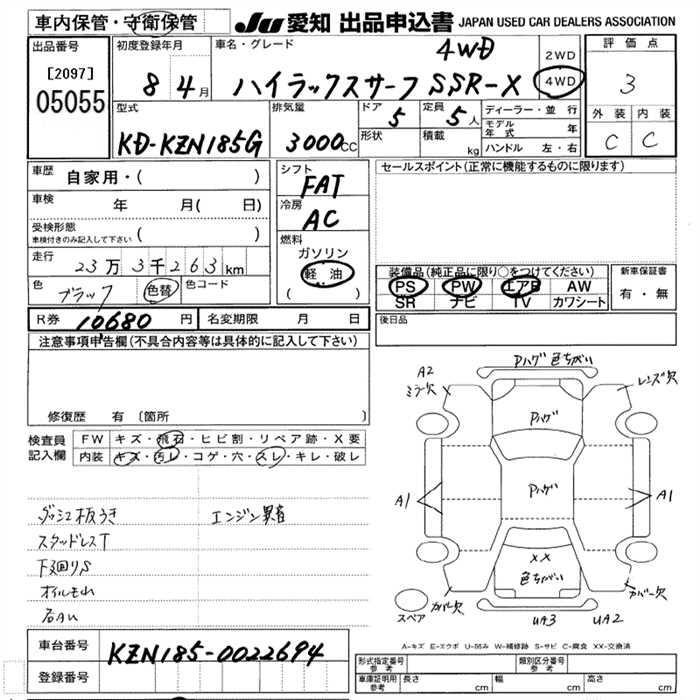 車内保管・守衛保管
JU 愛知 出品申込書 JAPAN USED CAR DEALERS ASSOCIATION
出品番号
[2097]
05055
初度登録年月
8 4月
車名・グレード
4WD
ハイラックスサーフ SSR-X
2WD
4WD
評価点
3
外装 内装
C C
型式
KD-KZN185G
排気量
3000cc
ドア
5
定員
5人
形状
積載
kg
ディーラー・並行
モデル年式 年
ハンドル 左・右
車歴
自家用・( )
車検
年 月( 日)
受検形態
車検付きのみ記入して下さい ( )
走行
23万3千263km
色
ブラック
色替
色コード
シフト
FAT
冷房
AC
燃料
ガソリン
軽油
( )
セールスポイント(正常に機能するものに限ります)
装備品(純正品に限り○をつけてください)
PS PW エアB AW
SR ナビ TV カワシート
新車保証書
有・無
R券 10680円
名変期限 月 日
後日品
注意事項申告欄(不具合内容等は具体的に記入して下さい)
修復歴 有 [箇所
検査員記入欄
FW キズ・飛石・ヒビ割・リペア跡・X要
内装 キズ・汚レ・コゲ・穴・スレ・キレ・破レ
ダッシュ板うき
エンジン異音
スタッドレスT
下廻りS
オイルもれ
Pハゲ 色ちがい
A2
ミラー欠
レンズ欠
Pハゲ
Pハゲ
A1
A1
XX
色ちがい
カバー欠
カバー欠
スペア
UA3
UA2
A-キズ E-エクボ U-凹み W-補修跡 S-サビ C-腐食 XX-交換済
車台番号
KZN185-0022694
登録番号
形式指定番号
参考
類別区分番号
参考
車庫証明用
参考
長さ cm
幅 cm
高さ cm